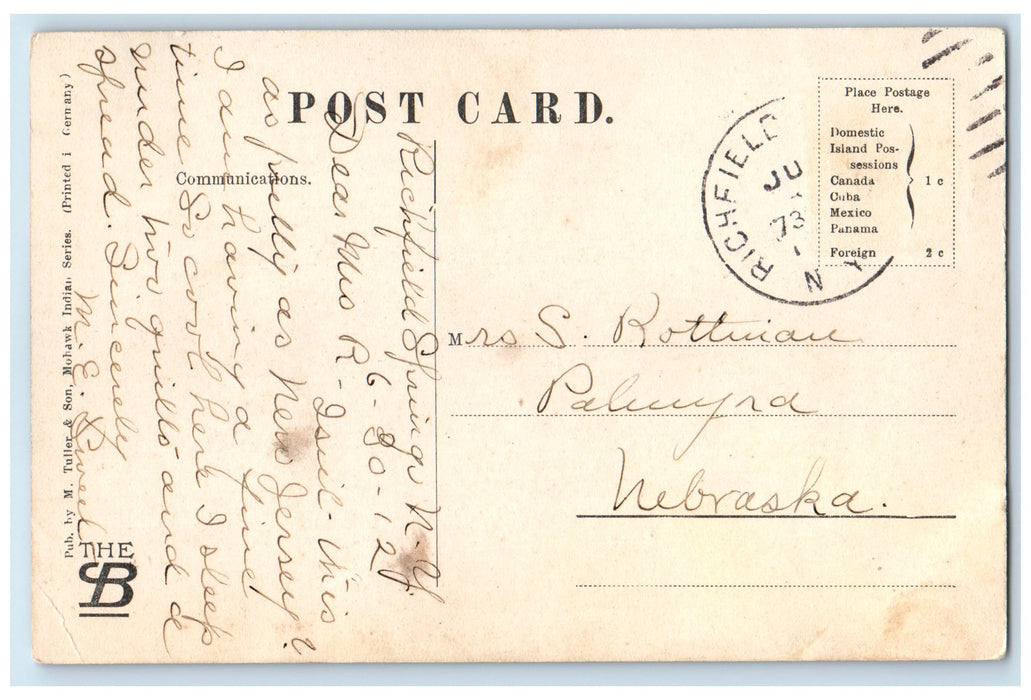 POST CARD.
Communications.
Richfield Springs N. Y.
6-30-12
Dear Mrs R- Isn't this
as pretty as New Jersey?
I am having a fine
time. So cool here I sleep
under two quilts and a
spread. Sincerely
M. E.
Pub. by M. Tuller & Son, Mohawk Indian Series. (Printed i Germany)
THE
SB
RICHFIELD
JU
N Y
Place Postage
Here.
Domestic
Island Pos-
sessions
Canada
Cuba
Mexico
Panama
1 c
Foreign 2 c
Mrs S. Rottman
Palmyra
Nebraska.